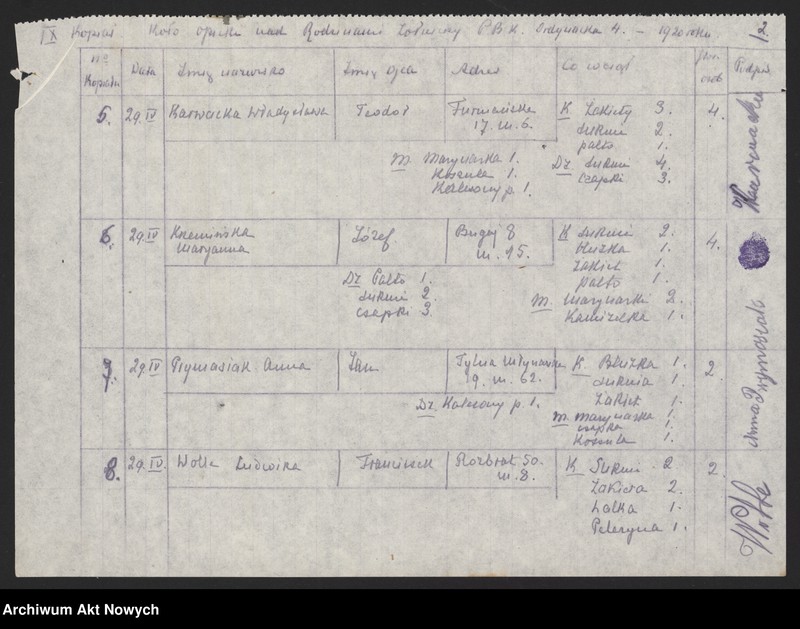 IX Kopiał Koło opieki nad Rodzinami Żołnierzy P.B.K. Ordynacka 4. – 1920 roku 2
No Kopiału Data Imię nazwisko Imię Ojca Adres Co wziął Ilość osób Podpis
5. 29 IV Karwacka Władysława Teodor Furmańska 17. m. 6. K Żakiety 3. 4.
sukni 2.
palto 1.
M Marynarka 1. Dz. sukni 4.
Koszula 1. czapki 3.
Kalesony p. 1.
6. 29 IV Krzemińska Maryanna Józef Bugaj 8 m. 15. K sukni 2. 4.
bluzka 1.
żakiet 1.
palto 1.
Dz Palto 1. M. Marynarki 2.
sukni 2. Kamizelka 1.
czapki 3.
7. 29 IV Prymasiak Anna Jan Tylna 9. m. 62. K. Bluzka 1. 2.
suknia 1.
Żakiet 1.
Dz. Kalesony p. 1. M. Marynarka 1.
czapka 1.
Koszula 1.
Anna Prymasiak
8. 29 IV. Wolle Ludwika Franciszek Rozbrat 50. m. 8. K Sukni 2 2.
Żakieta 2.
Halka 1.
Peleryna 1.